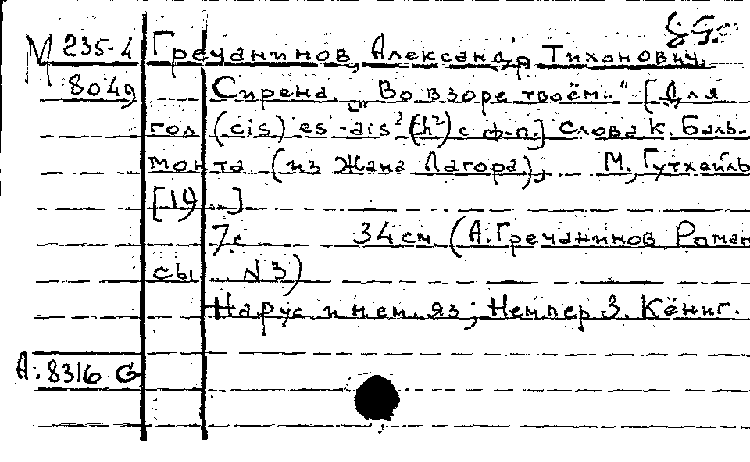 М 235-4 Гречанинов, Александр Тиханович.
8049 Сирена. "Во взоре твоём.." [Для
гол (cis) es-ais² (h²) с ф-п.] Слова К. Баль-
монта (из Жана Лагора), М, Гутхейль
[19 ..]
7с 34 см (А. Гречанинов Роман
сы ... N 3)
На рус и нем. яз; Нем пер З. Кёниг.
А. 8316 G